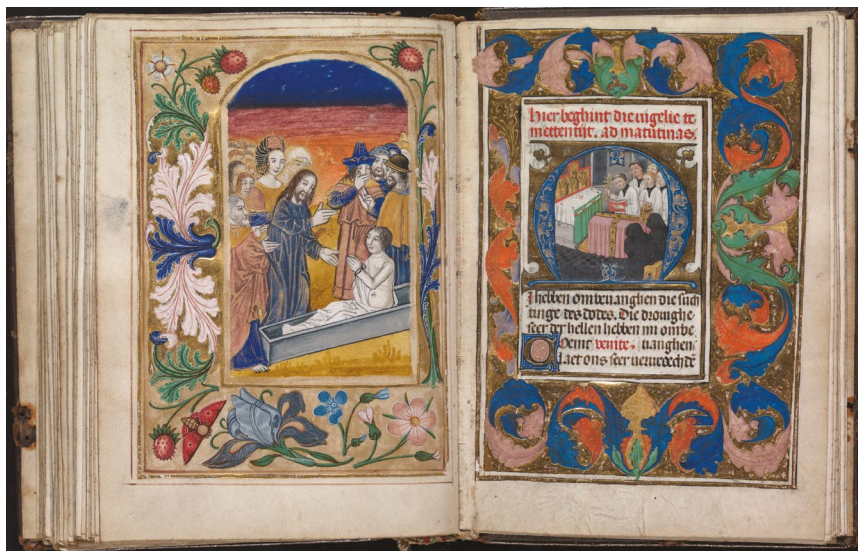 Hier beghint die vigelie te
mettentijt. ad matutinas.
Mi hebben ombevanghen die such
tinge des dodes. Die droughe
seer der hellen hebben mi ombe
Coemt venite. vanghen.
laet ons seer verwroechde